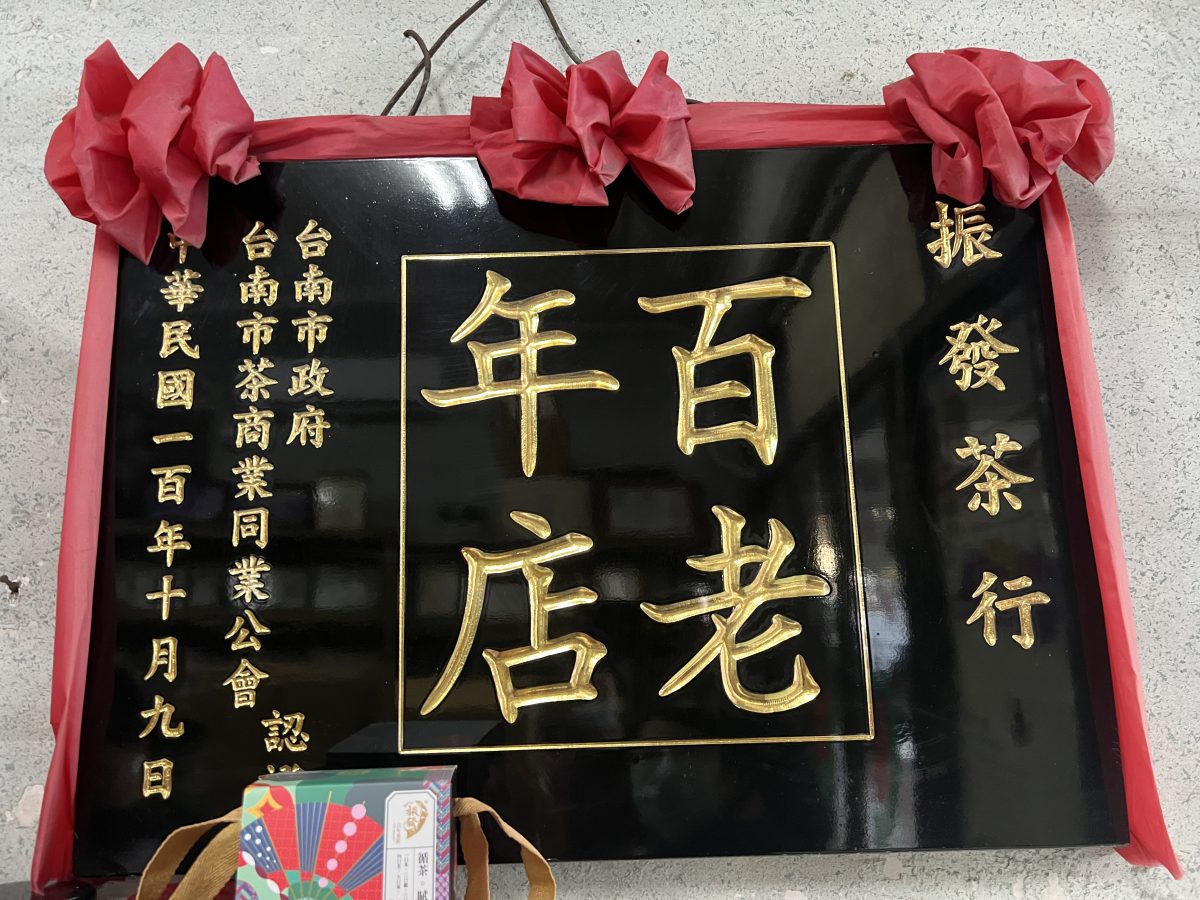 振發茶行
百老
年店
台南市政府
台南市茶商業同業公會
認
中華民國一百年十月九日
循茶